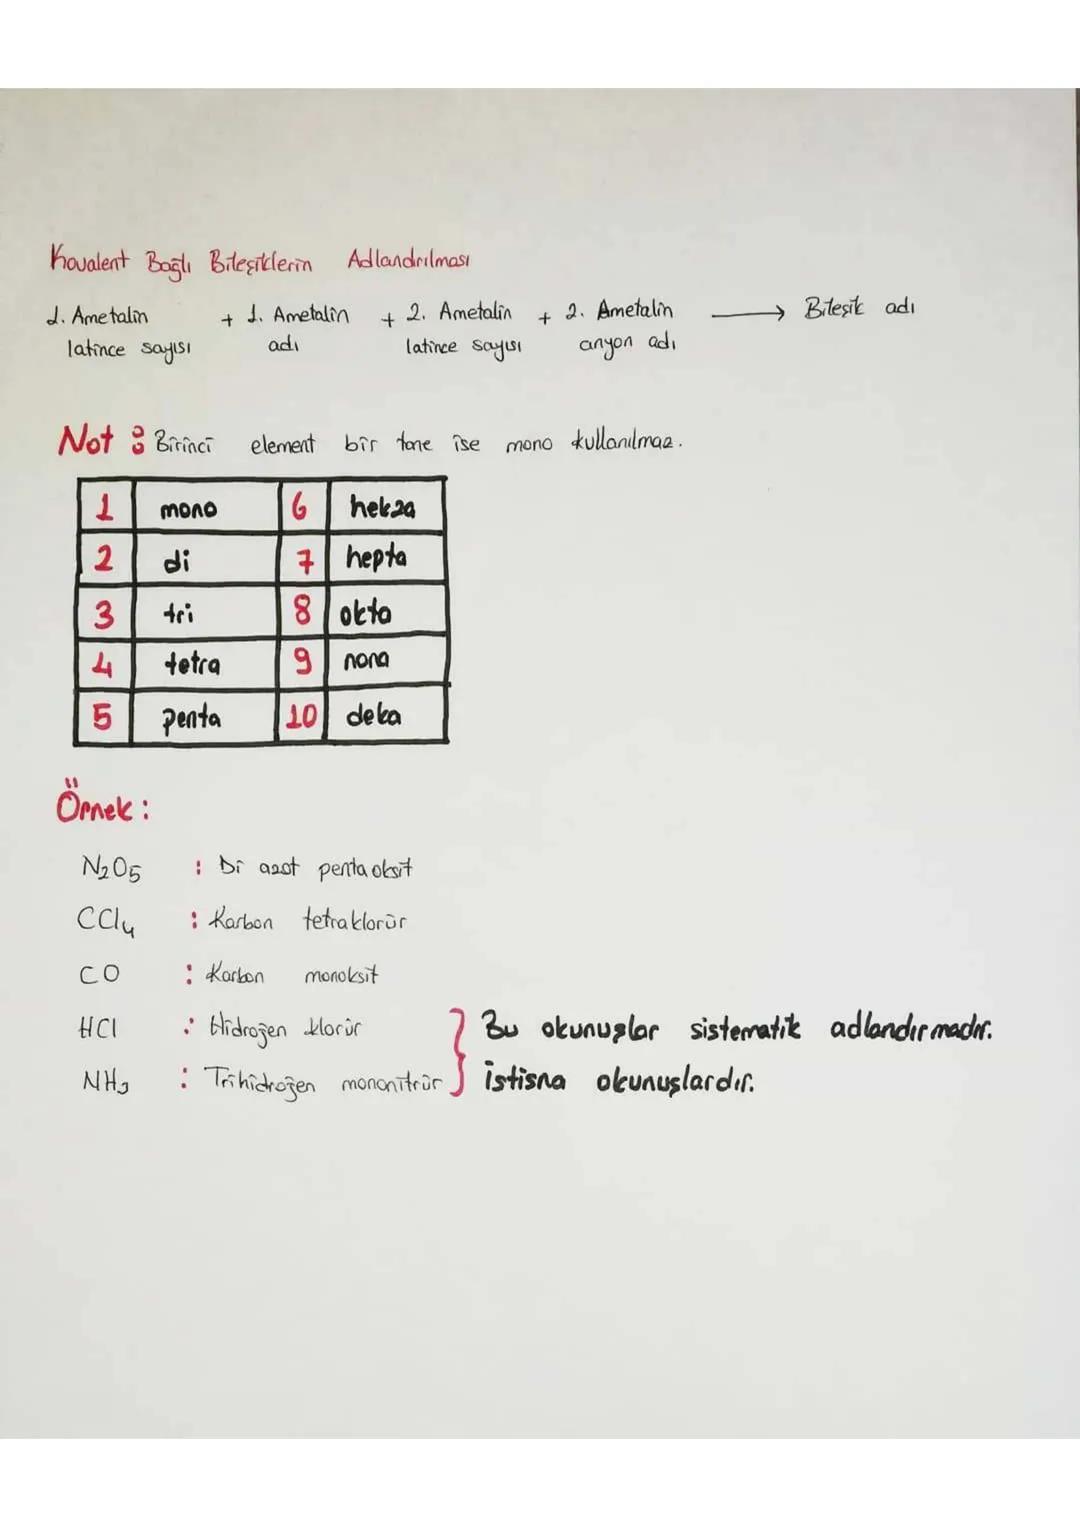 Kovalent Bağlı Bileşiklerin Adlandırılması
1. Ametalin + 1. Ametalin + 2. Ametalin + 2. Ametalin → Bileşik adı
latince sayısı adı latince sayısı anyon adı
Not : Birinci element bir tane ise mono kullanılmaz.
1 mono 6 hekza
2 di 7 hepta
3 tri 8 okta
4 tetra 9 nona
5 penta 10 deka
Örnek :
N2O5 : Di azot pentaoksit
CCl4 : Karbon tetraklorür
CO : Karbon monoksit
HCl : Hidrojen klorür } Bu okunuşlar sistematik adlandırmadır.
NH3 : Trihidrojen mononitrür } istisna okunuşlardır.